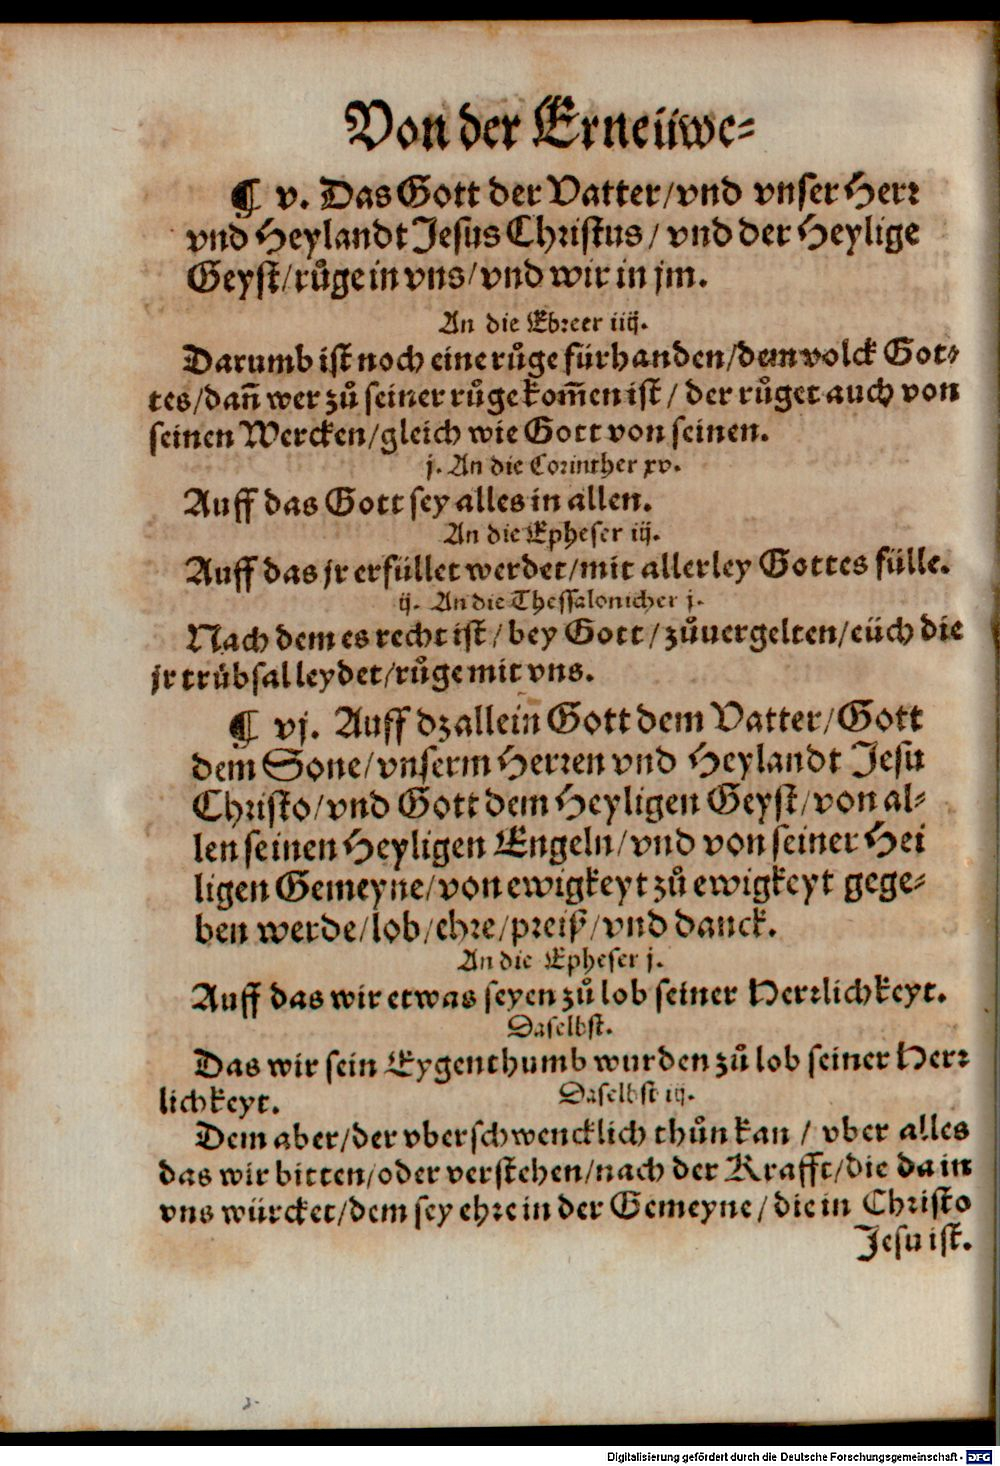 Von der Erneüwe⸗
¶ v. Das Gott der Vatter/vnd vnser Herꝛ
vnd Heylandt Jesus Chꝛistus/ vnd der Heylige
Geyst/růge in vns/vnd wir in jm.
An die Ebꝛeer iiij.
Darumb ist noch eine růge fürhanden/dem volck Got⸗
tes/dañ wer zů seiner růge kom̃en ist/ der růget auch von
seinen Wercken/gleich wie Gott von seinen.
j. An die Coꝛinther xv.
Auff das Gott sey alles in allen.
An die Epheser iij.
Auff das jr erfüllet werdet/mit allerley Gottes fülle.
ij. An die Thessalonicher j.
Nach dem es recht ist/ bey Gott/ zůuergelten/eüch die
jr trübsal leydet/růge mit vns.
¶ vj. Auff dz allein Gott dem Vatter/Gott
dem Sone/vnserm Herꝛen vnd Heylandt Jesu
Chꝛisto/vnd Gott dem Heyligen Geyst/von al⸗
len seinen Heyligen Engeln/vnd von seiner Hei
ligen Gemeyne/von ewigkeyt zů ewigkeyt gege⸗
ben werde/lob/ehꝛe/pꝛeiß/vnd danck.
An die Epheser j.
Auff das wir etwas seyen zů lob seiner Herꝛlichkeyt.
Daselbst.
Das wir sein Eygenthumb wurden zů lob seiner Herꝛ
lichkeyt. Daselbst iij.
Dem aber/der vberschwencklich thůn kan / vber alles
das wir bitten/oder verstehen/nach der Krafft/die da in
vns würcket/dem sey ehꝛe in der Gemeyne/ die in Chꝛisto
Jesu ist.
Digitalisierung gefördert durch die Deutsche Forschungsgemeinschaft - DFG